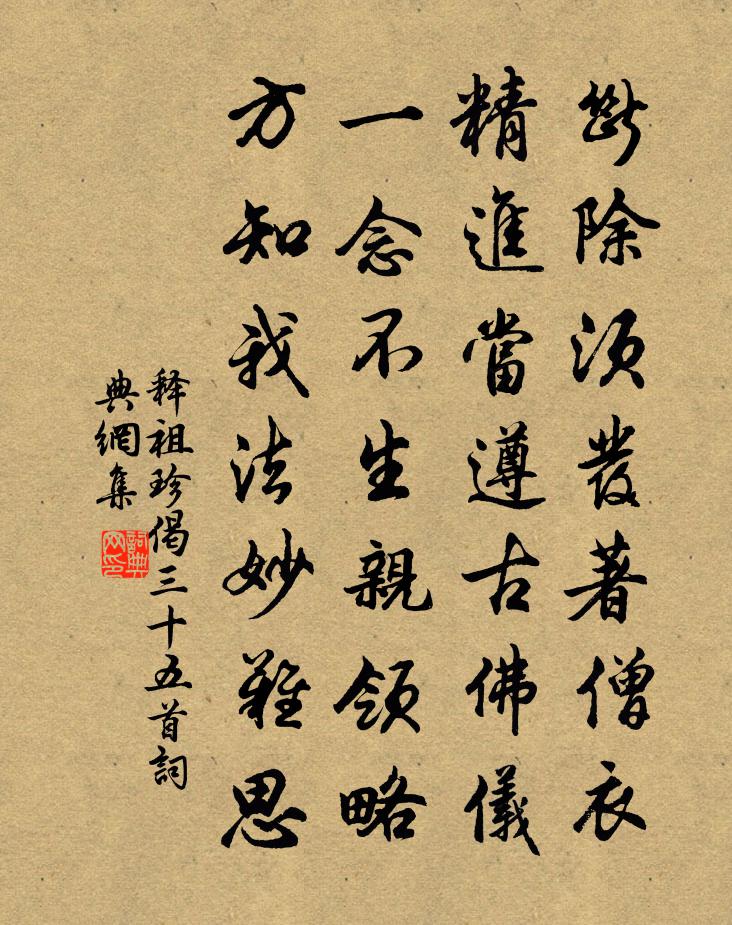 斷除須發著僧衣
精進當遵古佛儀
一念不生親領略
方知我法妙難思
释祖珍偈三十五首詞
典網集
詞典
网印